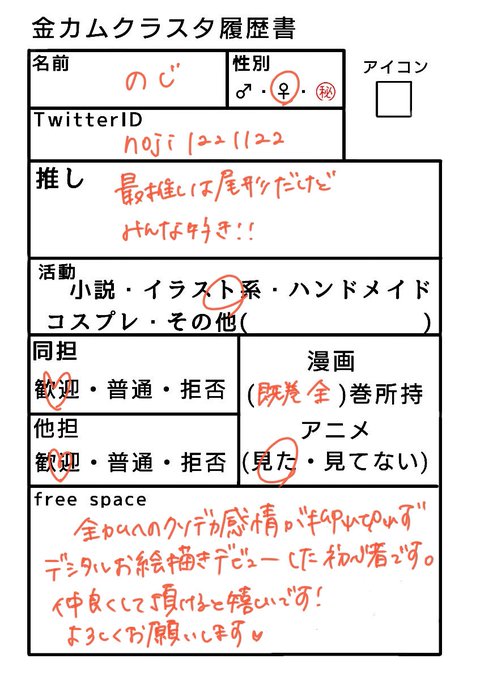 金カムクラスタ履歴書
名前
のじ
性別
♂・♀・㊙
アイコン
TwitterID
noji1221122
推し
最推しは尾形だけど
みんな好き!!
活動
小説・イラスト系・ハンドメイド
コスプレ・その他( )
同担
歓迎・普通・拒否
他担
歓迎・普通・拒否
漫画
(既巻全)巻所持
アニメ
(見た・見てない)
free space
金カムへのクソデカ感情が抑えられず
デジタルお絵描きデビューした初心者です。
仲良くして頂けると嬉しいです!
よろしくお願いします♥